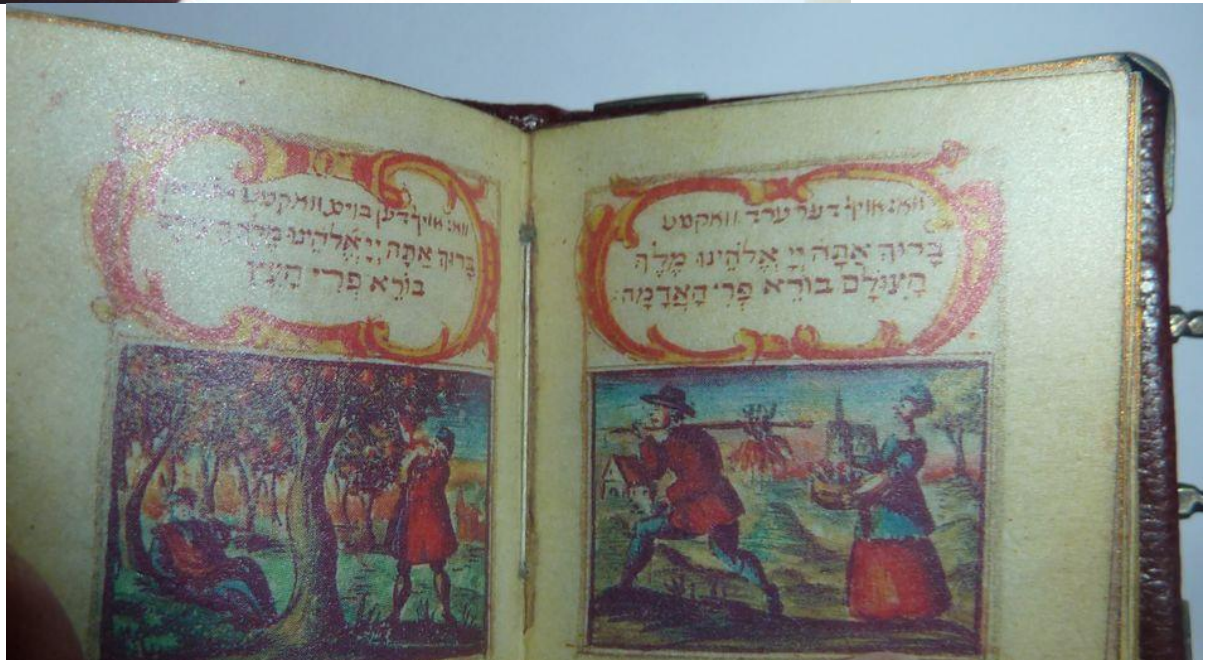 וואז אויף דער ערד וואקסט
בָּרוּךְ אַתָּה יְיָ אֱלֹהֵינוּ מֶלֶךְ
הָעוֹלָם בּוֹרֵא פְּרִי הָאֲדָמָה:
וואז אויף דען בוים וואקסט
בָּרוּךְ אַתָּה יְיָ אֱלֹהֵינוּ מֶלֶךְ הָעוֹלָם
בּוֹרֵא פְּרִי הָעֵץ